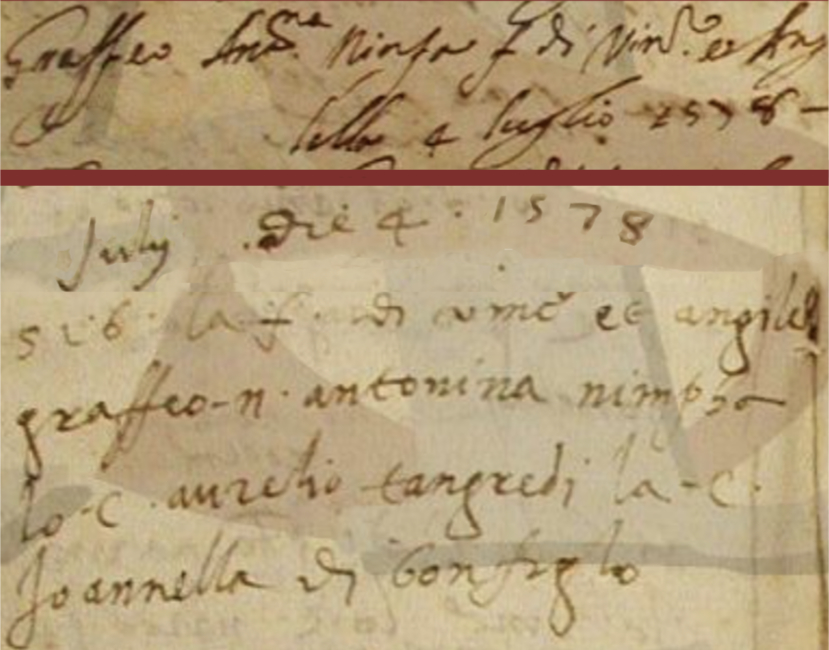 Graffeo Ant.na Ninfa f di Vinc.o et Ang
lella 4 luglio 1578 -
July die 4 · 1578
la f di vinc.o et angilell
graffeo-n· antonina nimpha
lo·c· aurelio tangredi la-c·
Joannella di Bonfiglo